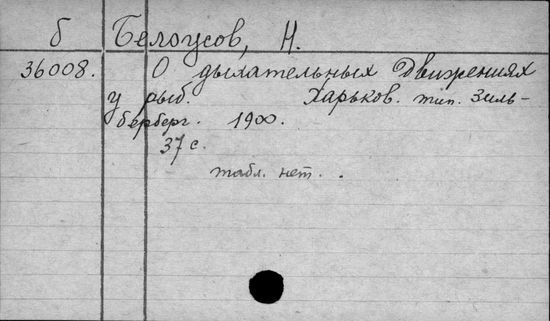 б Белоусов, Н.
36008. О дыхательных движениях
у рыб. Харьков. тип. Зиль-
берберг. 1900.
37 с.
табл. нет.